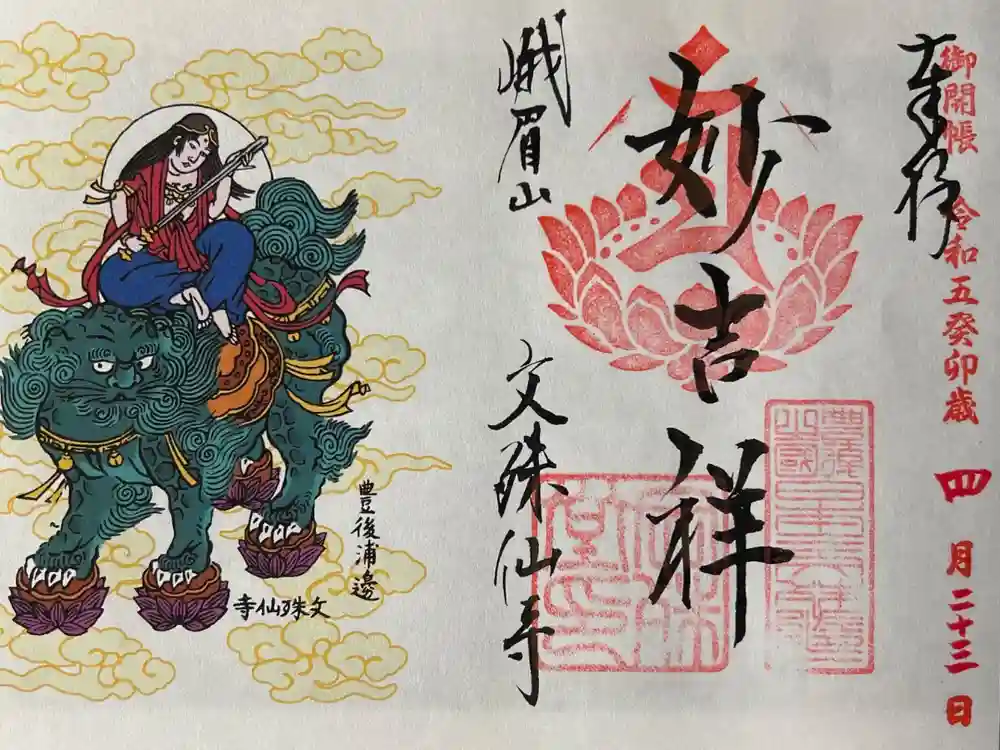 奉拝
御開帳 令和五癸卯歳 四月二十三日
妙吉祥
峨眉山 文殊仙寺
豊後浦邊
文殊仙寺